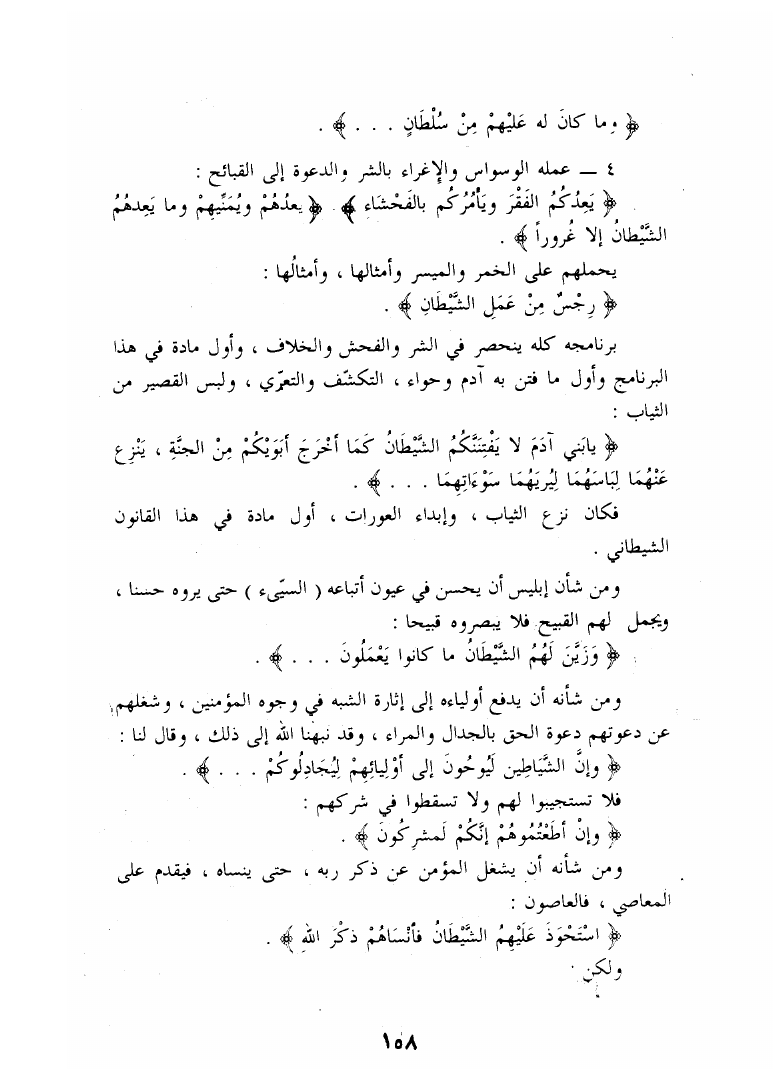 ﴿ وما كانَ له عَلَيْهِمْ مِنْ سُلْطَانٍ . . . ﴾ .
٤ ــ عمله الوسواس والإغراء بالشر والدعوة إلى القبائح :
﴿ يَعِدُكُمُ الفَقْرَ ويَأْمُرُكُم بالفَحْشَاء ﴾ . ﴿ يعدُهُمْ ويُمَنِّيهِمْ وما يَعِدهُمُ
الشَّيْطانُ إلا غُروراً ﴾ .
يحملهم على الخمر والميسر وأمثالها ، وأمثالُها :
﴿ رِجْسٌ مِنْ عَمَلِ الشَّيْطَانِ ﴾ .
برنامجه كله ينحصر في الشر والفحش والخلاف ، وأول مادة في هذا
البرنامج وأول ما فتن به آدم وحواء ، التكشّف والتعرّي ، ولبس القصير من
الثياب :
﴿ يابَني آدَمَ لا يَفْتِنَنَّكُمُ الشَّيْطَانُ كَمَا أخْرَجَ أبَوَيْكُمْ مِنْ الجنَّةِ ، يَنْزِع
عَنْهُمَا لِبَاسَهُمَا لِيُرِيَهُمَا سَوْءَاتِهِمَا . . . ﴾ .
فكان نزع الثياب ، وإبداء العورات ، أول مادة في هذا القانون
الشيطاني .
ومن شأن إبليس أن يحسن في عيون أتباعه ( السيّىء ) حتى يروه حسنا ،
ويجمل لهم القبيح فلا يبصروه قبيحا :
﴿ وَزَيَّنَ لَهُمُ الشَّيْطَانُ ما كانوا يَعْمَلُونَ . . . ﴾ .
ومن شأنه أن يدفع أولياءه إلى إثارة الشبه في وجوه المؤمنين ، وشغلهم
عن دعوتهم دعوة الحق بالجدال والمراء ، وقد نبهنا الله إلى ذلك ، وقال لنا :
﴿ وإنَّ الشَّيَاطين لَيُوحُونَ إلى أوْلِيائِهِمْ لِيُجَادِلُوكُمْ . . . ﴾ .
فلا تستجيبوا لهم ولا تسقطوا في شركهم :
﴿ وإنْ أطَعْتُمُوهُمْ إنَّكُمْ لَمشركُونَ ﴾ .
ومن شأنه أن يشغل المؤمن عن ذكر ربه ، حتى ينساه ، فيقدم على
المعاصي ، فالعاصون :
﴿ اسْتَحْوَذَ عَلَيْهِمُ الشَّيْطَانُ فأنْسَاهُمْ ذكْرَ اللهِ ﴾ .
ولكن
١٥٨